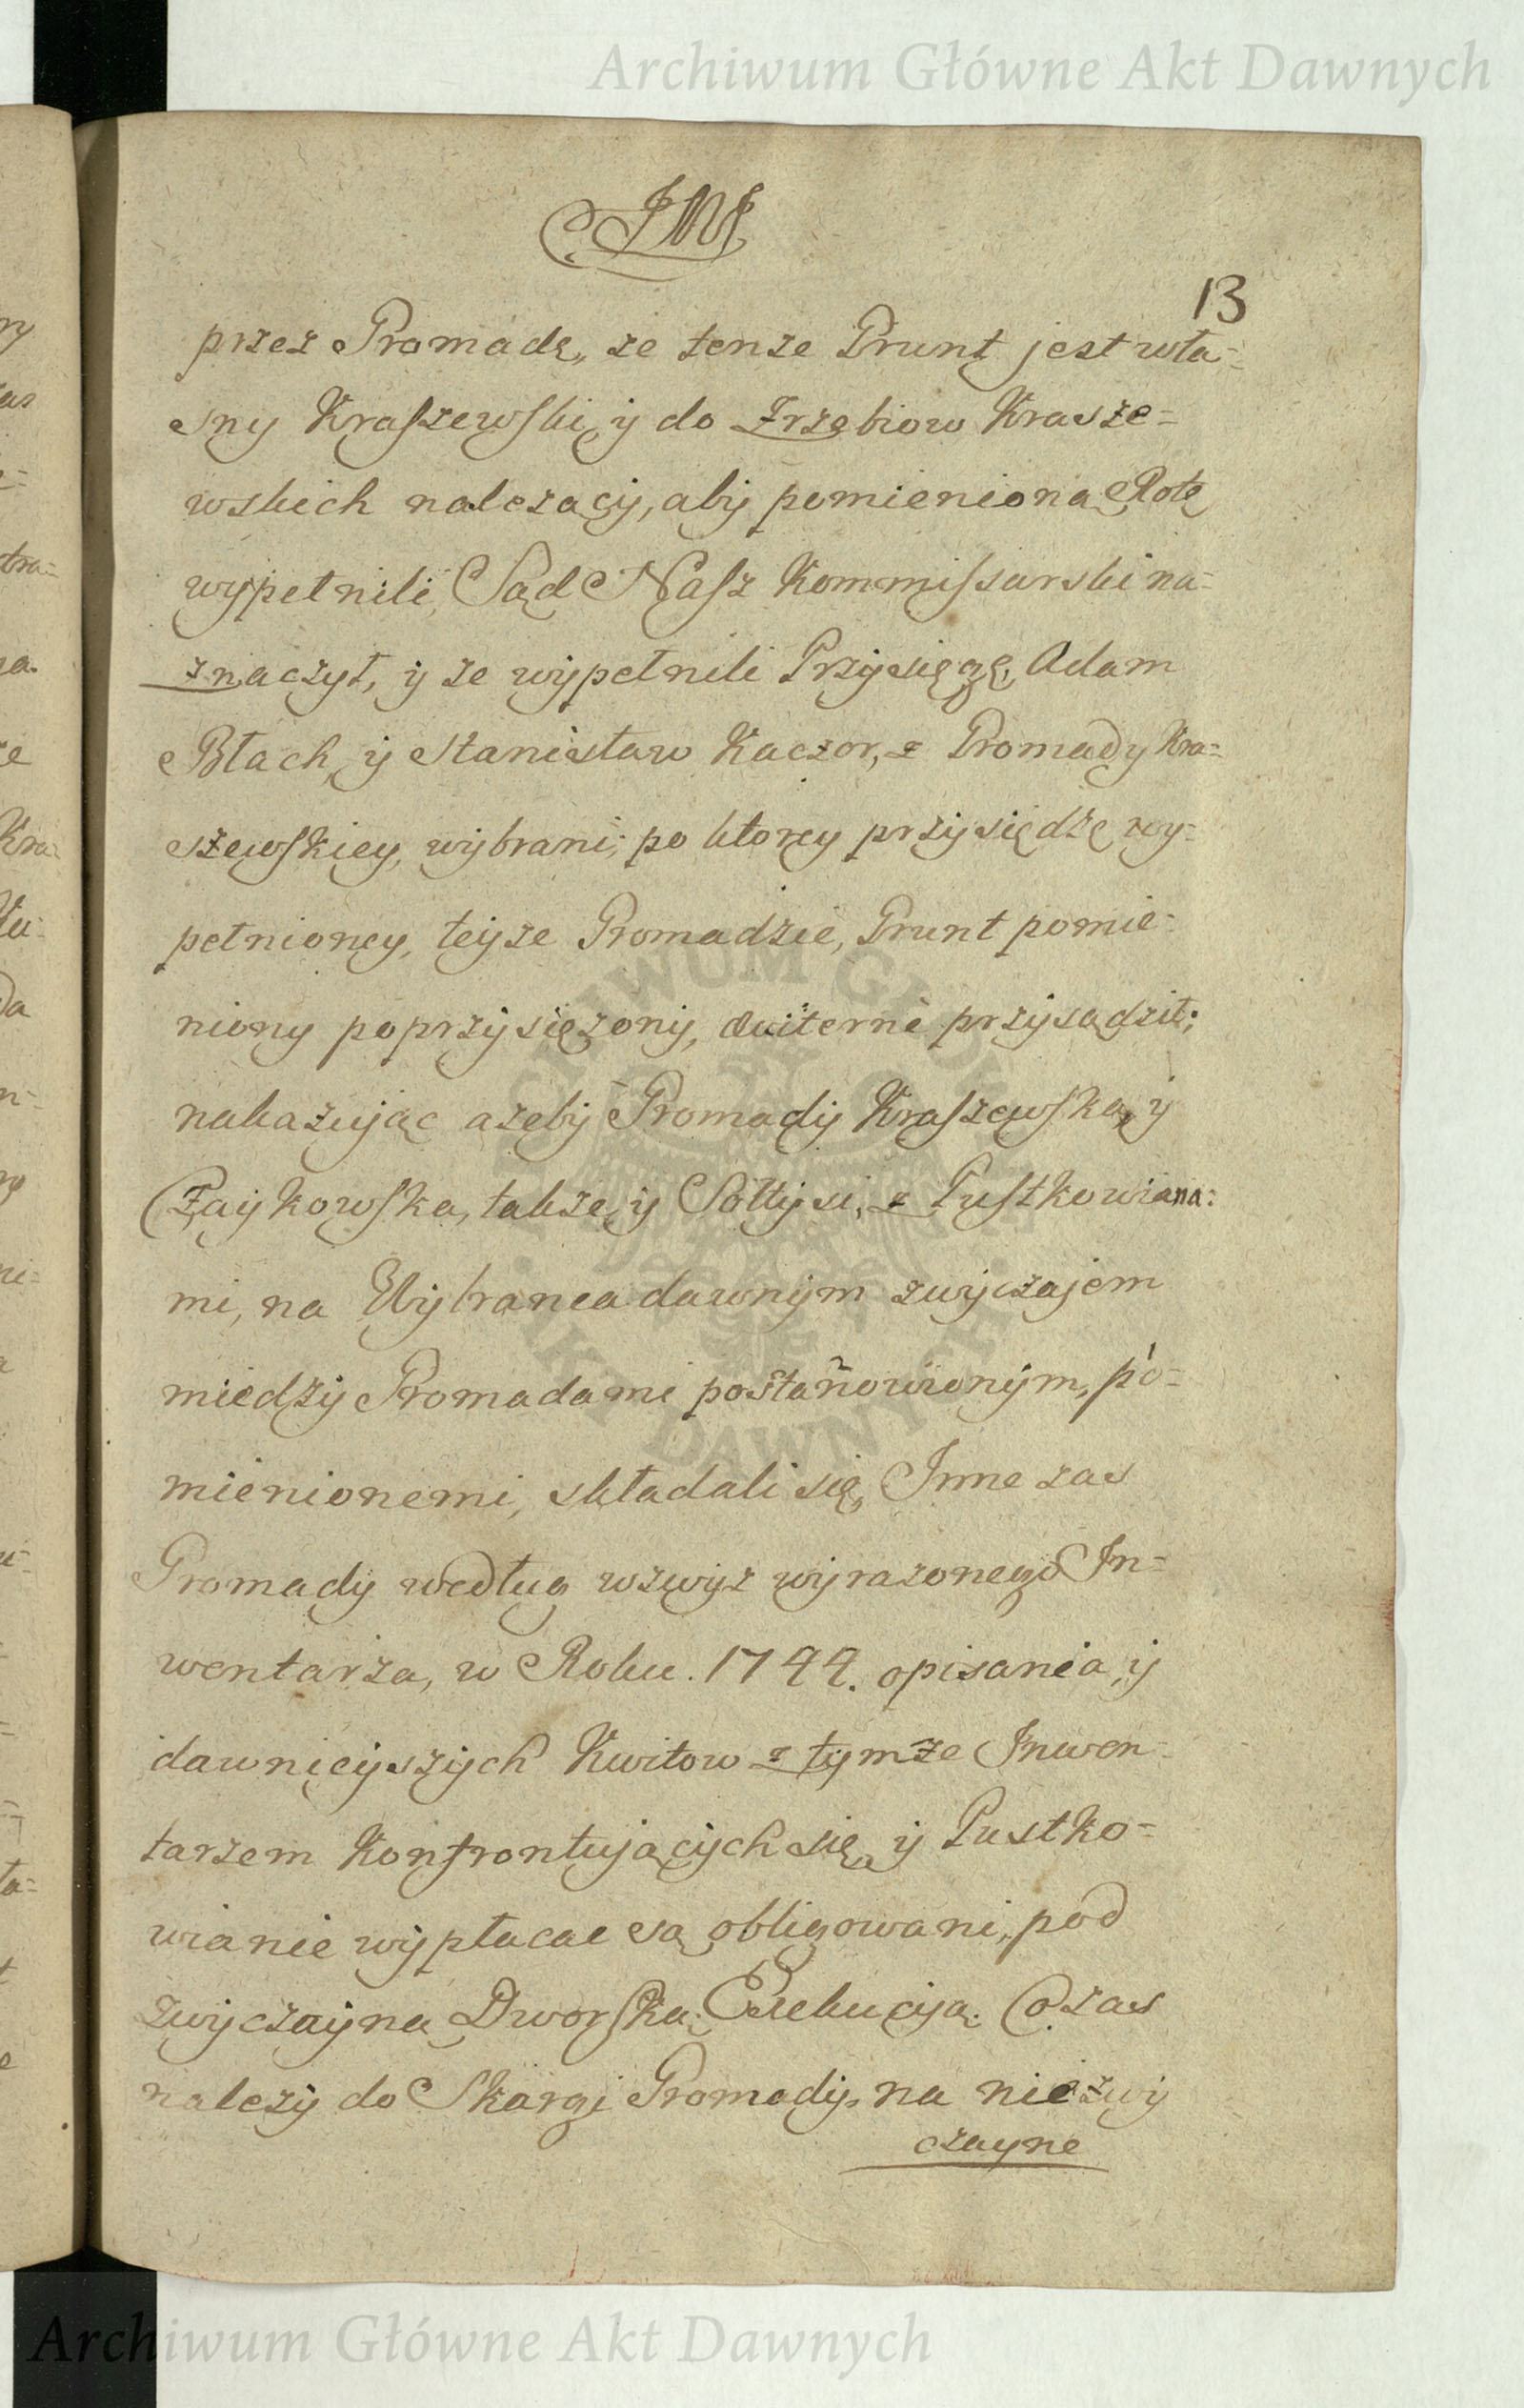 Archiwum Główne Akt Dawnych
13
przez Gromadę, ze tenze Grunt jest wła=
sny Kraszewski, y do Zrzebiow Krasze=
wskich nalezący, aby pomienioną Rotę
wypełnili, Sąd Nasz Kommissarski na=
znaczył, y ze wypełnili Przysięgę, Adam
Błach, y Stanisław Kaczor, z Gromady Kra=
szewskiey, wybrani; po ktorey przysiędze wy=
pełnioney, teyze Gromadzie, Grunt pomie=
niony poprzysięzony, przysądził;
nakazując azeby Gromady Kraszewska, y
Zaykowska, takze y Sołtysi, z Pustkowiana=
mi, na Wybranca dawnym zwyczajem
miedzy Gromadami postanowionym, po=
mienionemi, składali się, Inne zas
Gromady według wzwyz wyrazonego In=
wentarza, w Roku. 1744. opisania, y
dawnieyszych Kwitow z tymze Inwen=
tarzem Konfrontujących się, y Pustko=
wianie wypłacac są obligowani, pod
zwyczayną Dworską Exekucyą. Co zas
nalezy do Skargi Gromady, na niezwy
czayne
ARCHIWUM GŁÓWNE AKT DAWNYCH
Archiwum Główne Akt Dawnych